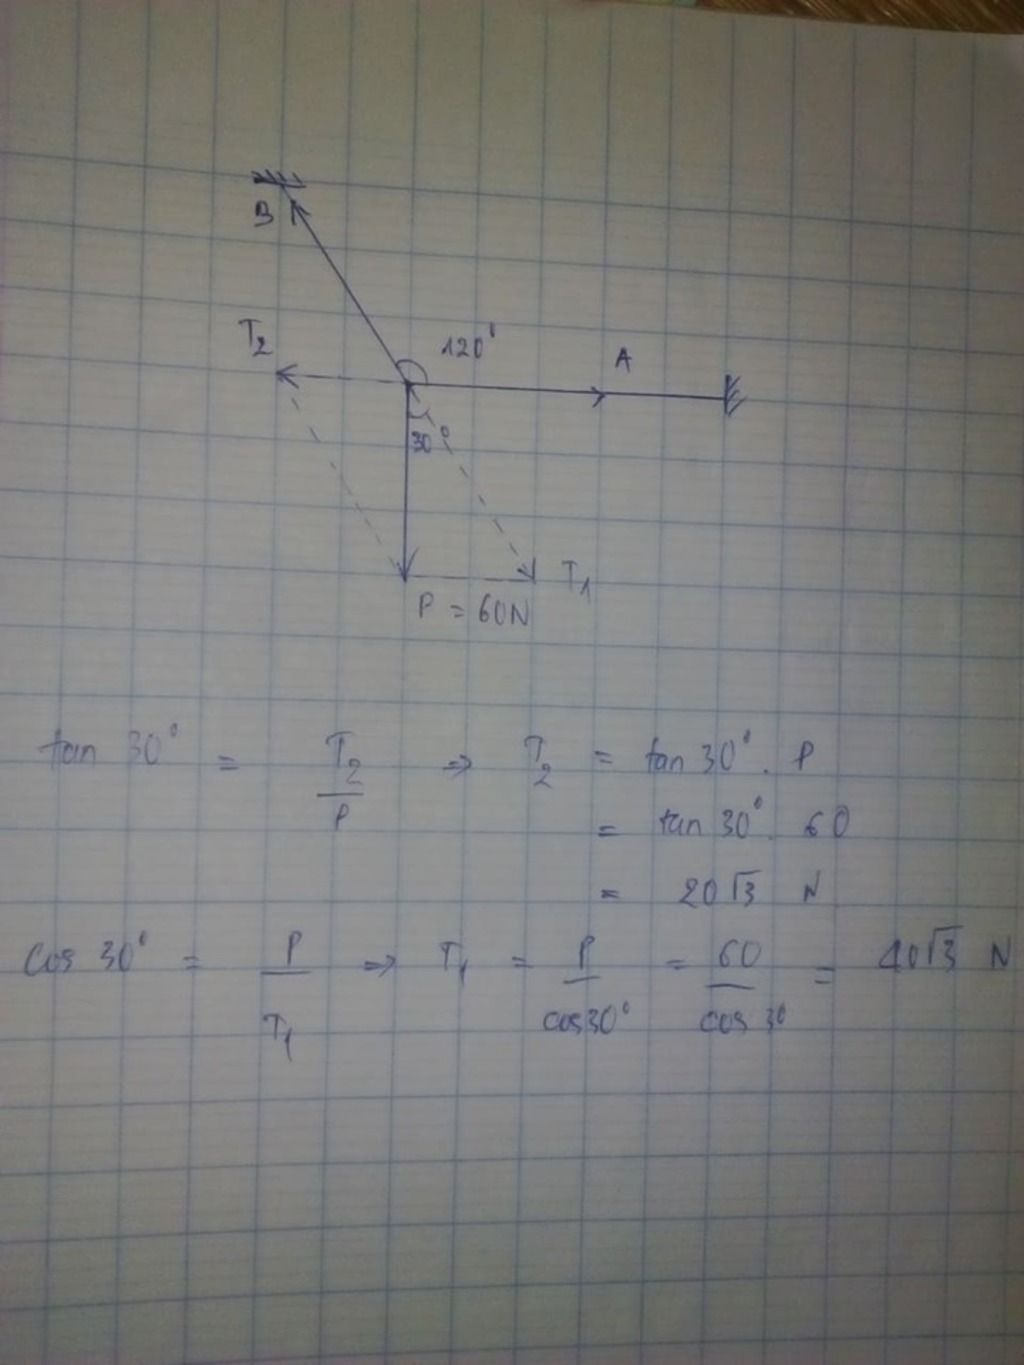 B
T2 120° A
30°
T1
P = 60N
tan 30° = T2/P => T2 = tan 30° . P
= tan 30° . 60
= 20√3 N
cos 30° = P/T1 => T1 = P/cos30° = 60/cos 30 = 40√3 N